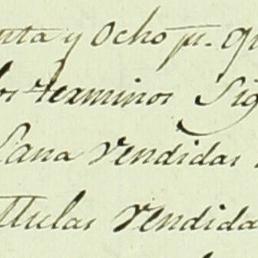 nta y ocho p.
los terminos Sig
Lana vendidas
Mulas vendida